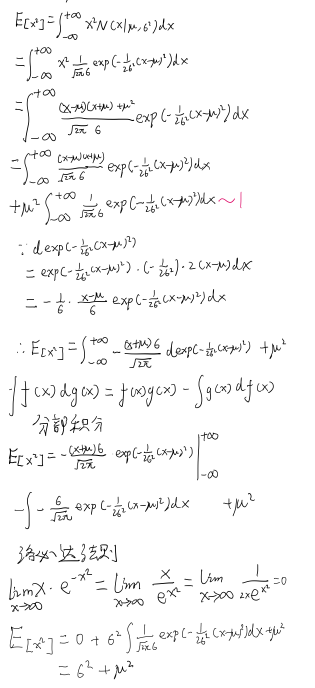 E[x²]=∫_{-∞}^{+∞} x²N(x|μ,6²)dx
=∫_{-∞}^{+∞} x² \frac{1}{\sqrt{2π}6} exp(-\frac{1}{26²}(x-μ)²)dx
=∫_{-∞}^{+∞} \frac{(x-μ)(x+μ)+μ²}{\sqrt{2π} 6} exp(-\frac{1}{26²}(x-μ)²)dx
=∫_{-∞}^{+∞} \frac{(x-μ)(x+μ)}{\sqrt{2π}6} exp(-\frac{1}{26²}(x-μ)²)dx
+μ²∫_{-∞}^{+∞} \frac{1}{\sqrt{2π}6} exp(-\frac{1}{26²}(x-μ)²)dx ~ 1
∵ d exp(-\frac{1}{26²}(x-μ)²)
= exp(-\frac{1}{26²}(x-μ)²)·(-\frac{1}{26²})·2(x-μ)dx
= -\frac{1}{6}·\frac{x-μ}{6} exp(-\frac{1}{26²}(x-μ)²)dx
∴ E[x²]=∫_{-∞}^{+∞} -\frac{(x+μ)6}{\sqrt{2π}} d exp(-\frac{1}{26²}(x-μ)²) +μ²
∫f(x)dg(x)=f(x)g(x)-∫g(x)df(x)
分部积分
E[x²]=-\frac{(x+μ)6}{\sqrt{2π}} exp(-\frac{1}{26²}(x-μ)²)|_{-∞}^{+∞}
-∫-\frac{6}{\sqrt{2π}} exp(-\frac{1}{26²}(x-μ)²)dx +μ²
洛必达法则
\lim_{x→∞} x·e^{-x²}=\lim_{x→∞} \frac{x}{e^{x²}}=\lim_{x→∞} \frac{1}{2xe^{x²}}=0
E[x²]=0+6²∫\frac{1}{\sqrt{2π}6} exp(-\frac{1}{26²}(x-μ)²)dx+μ²
=6²+μ²